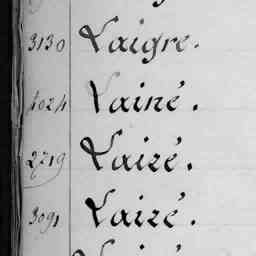 3130 Laigre.
1024 Lainé.
2719 Laizé.
3091 Laizé.